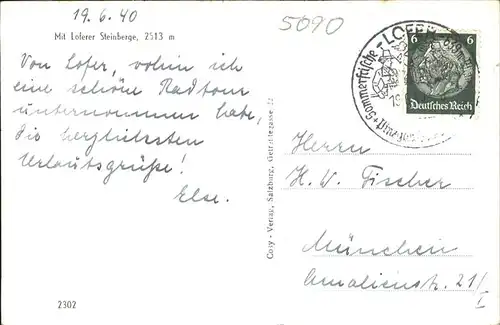 19.6.40
5090
Mit Loferer Steinberge, 2513 m
Von Lofer, wohin ich
eine schöne Radtour
unternommen habe,
die herzlichsten
Urlaubsgrüße!
Else.
2302
Cosy - Verlag, Salzburg, Getreidegasse 22
LOFER
Sommerfrische
6 6
Deutsches Reich
Herrn
H. W. Fischer
München
Amalienstr. 21/I